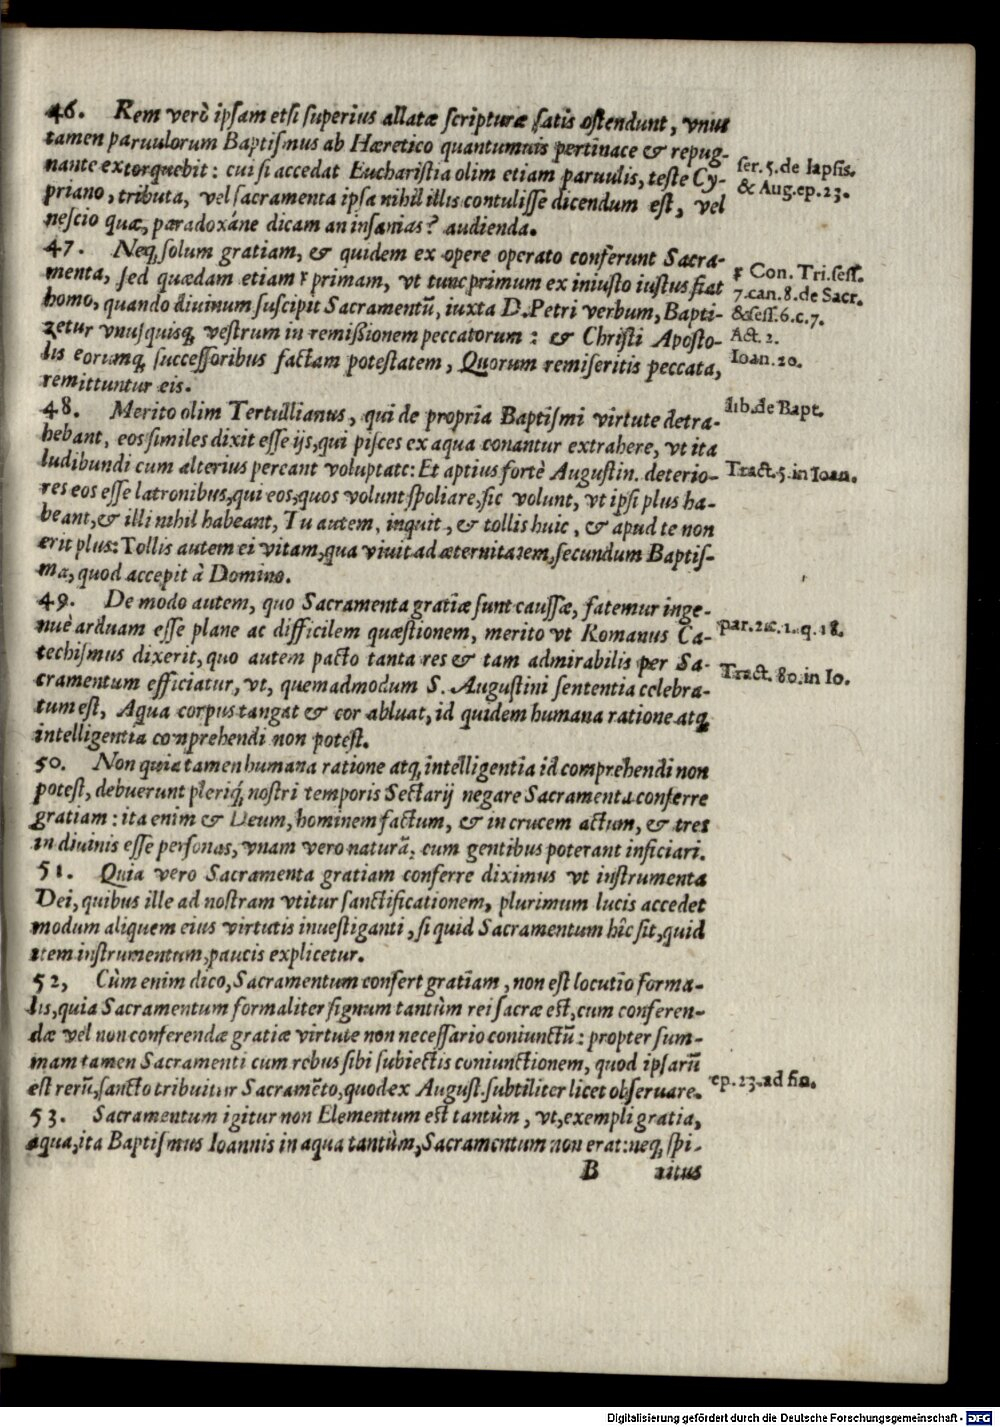 46. Rem verò ipsam etsi superius allatæ scripturæ satis ostendunt, vnus
tamen paruulorum Baptismus ab Hæretico quantumuis pertinace & repug-
nante extorquebit: cui si accedat Eucharistia olim etiam paruulis, teste Cy-
ser. 5. de lapsis.
priano, tributa, vel sacramenta ipsa nihil illis contulisse dicendum est, vel
& Aug. ep. 23.
nescio quæ, paradoxáne dicam an insanias? audienda.
47. Neq; solum gratiam, & quidem ex opere operato conferunt Sacra-
menta, sed quædam etiam r primam, vt tunc primum ex iniusto iustus fiat
r Con. Tri. sess.
homo, quando diuinum suscipit Sacramentū, iuxta D. Petri verbum, Bapti-
7. can. 8. de Sacr.
& sess. 6. c. 7.
zetur vnusquisq; vestrum in remißionem peccatorum: & Christi Aposto-
Act. 2.
lis eorumq; successoribus factam potestatem, Quorum remiseritis peccata,
Ioan. 20.
remittuntur eis.
48. Merito olim Tertullianus, qui de propria Baptismi virtute detra-
lib. de Bapt.
hebant, eos similes dixit esse ijs, qui pisces ex aqua conantur extrahere, vt ita
ludibundi cum alterius pereant voluptate: Et aptius fortè Augustin. deterio-
Tract. 5. in Ioan.
res eos esse latronibus, qui eos, quos volunt spoliare, sic volunt, vt ipsi plus ha-
beant, & illi nihil habeant, Tu autem, inquit, & tollis huic, & apud te non
erit plus: Tollis autem ei vitam, qua viuit ad æternitatem, secundum Baptis-
ma, quod accepit à Domino.
49. De modo autem, quo Sacramenta gratiæ sunt caussæ, fatemur inge-
nuè arduam esse plane ac difficilem quæstionem, merito vt Romanus Ca-
par. 2. c. 1. q. 18.
techismus dixerit, quo autem pacto tanta res & tam admirabilis per Sa-
cramentum efficiatur, vt, quemadmodum S. Augustini sententia celebra-
Tract. 80. in Io.
tum est, Aqua corpus tangat & cor abluat, id quidem humana ratione atq;
intelligentia comprehendi non potest.
50. Non quia tamen humana ratione atq; intelligentia id comprehendi non
potest, debuerunt pleriq; nostri temporis Sectarij negare Sacramenta conferre
gratiam: ita enim & Deum, hominem factum, & in crucem actum, & tres
in diuinis esse personas, vnam vero naturā, cum gentibus poterant inficiari.
51. Quia vero Sacramenta gratiam conferre diximus vt instrumenta
Dei, quibus ille ad nostram vtitur sanctificationem, plurimum lucis accedet
modum aliquem eius virtutis inuestiganti, si quid Sacramentum hîc sit, quid
item instrumentum, paucis explicetur.
52, Cùm enim dico, Sacramentum confert gratiam, non est locutio forma-
lis, quia Sacramentum formaliter signum tantùm rei sacræ est, cum conferen-
dæ vel non conferendæ gratiæ virtute non necessario coniunctū: propter sum-
mam tamen Sacramenti cum rebus sibi subiectis coniunctionem, quod ipsarū
est rerū, sancto tribuitur Sacramēto, quod ex August. subtiliter licet obseruare.
ep. 23. ad fin.
53. Sacramentum igitur non Elementum est tantùm, vt, exempli gratia,
aqua, ita Baptismus Ioannis in aqua tantùm, Sacramentum non erat: neq; spi-
B ritus
Digitalisierung gefördert durch die Deutsche Forschungsgemeinschaft - DFG